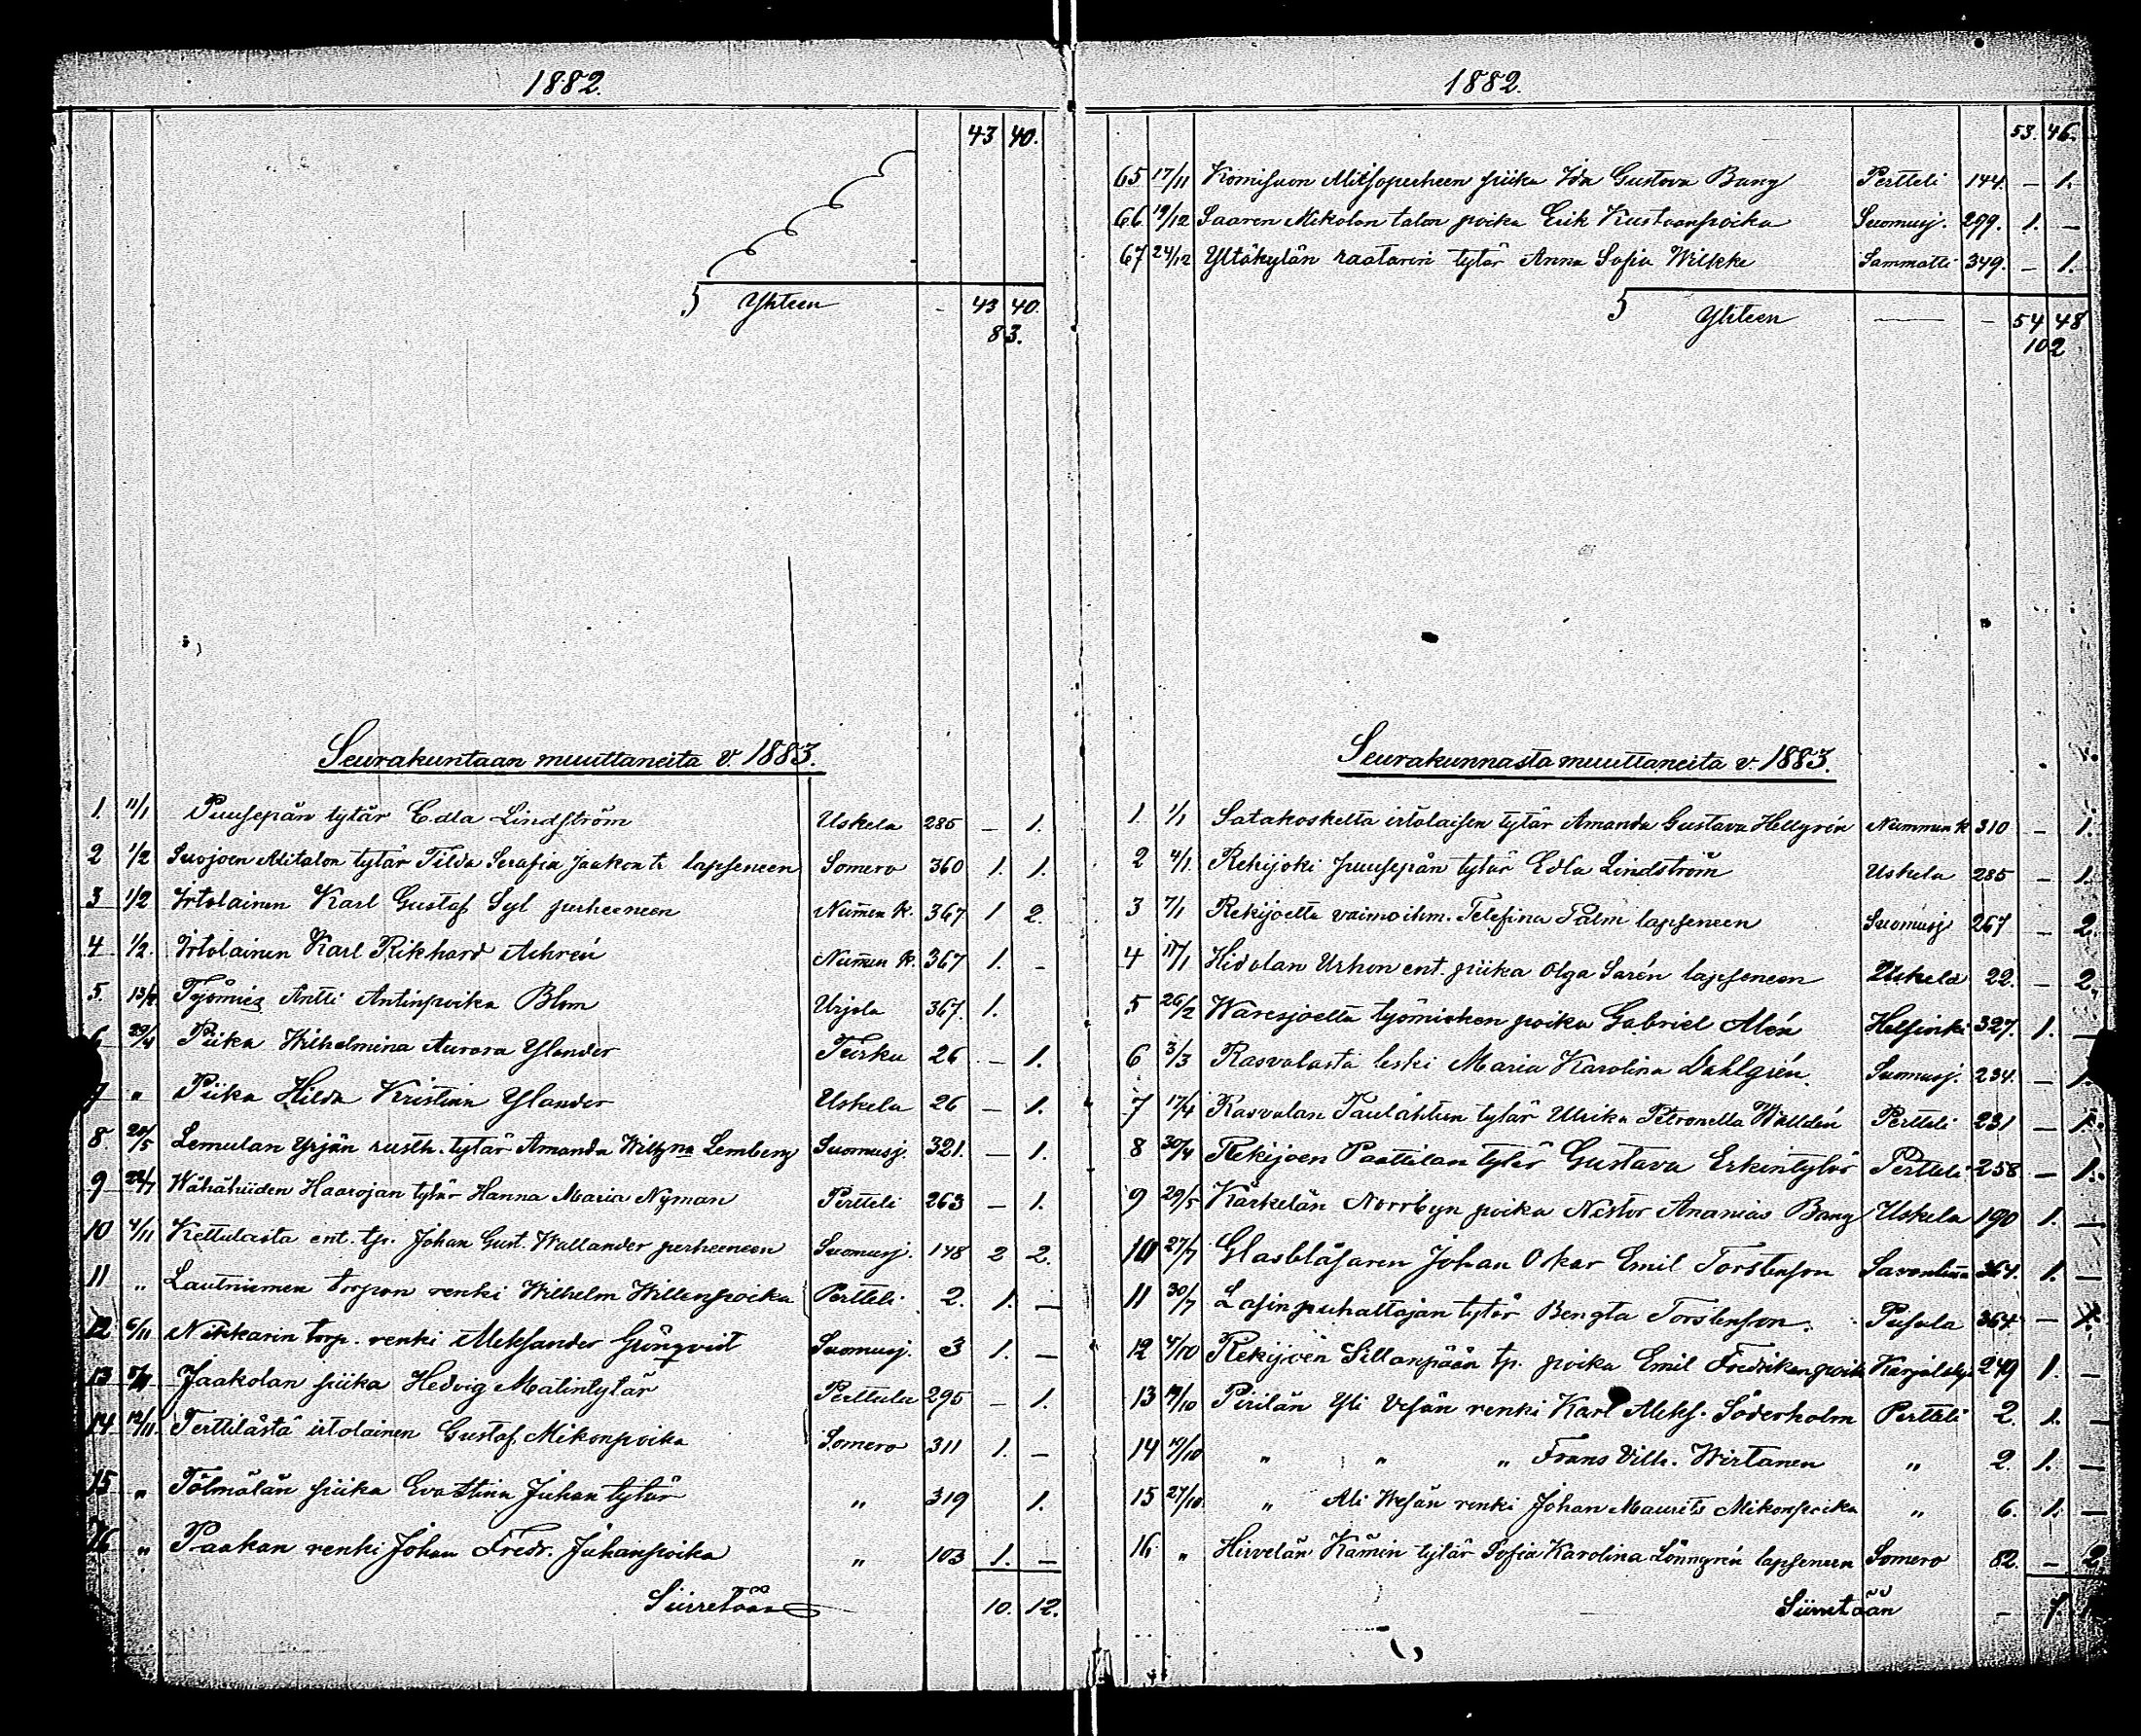 1882.
43 40.
Yhteen - 43 40.
83.
Seurakuntaan muuttaneita v. 1883.
1. 11/1 Puusepän tytär Edla Lindström Uskela 285 — 1.
2 1/2 Suojoen Alitalon tytär Tilda Serafia Jaakon t. lapseneen Somero 360 1. 1.
3 1/2 Irtolainen Karl Gustaf Syl perheeneen Numm k. 367 1 2.
4 1/2. Irtolainen Karl Rikhard Achrén Numm k. 367 1. -
5. Työmies Antti Antinpoika Blom Urjala 367. 1.
6 29/4 Piika Wilhelmina Aurora Ylander Turku 26 — 1.
7 " Piika Hilda Kristina Ylander Uskela 26 — 1.
8. 20/5 Lemulan Yrjän rusth. tytär Amanda Wilhna Lemberg Suomusj. 321. — 1.
9 22/7 Wähähiiden Haarojan tytär Hanna Maria Nyman Pertteli 263 — 1.
10 4/11 Kettulasta ent. tp. Johan Gust. Wallander perheeneen Suomusj. 148 2 2.
11 " Lautniemen torpan renki Wilhelm Willenpoika Pertteli 2. 1. —
12 6/11 Nikkarin torp. renki Aleksander Grönqvist Suomusj. 3 1. —
13 Jaakolan piika Hedvig Matintytär Perttula 295 — 1.
14. 12/11. Terttilästä irtolainen Gustaf Mikonpoika Somero 311 1. —
15 " Tölmälän piika Eva Stina Juhan tytär " 319 1.
16 " Paakan renki Johan Fredr. Juhanpoika " 103 1. —
Siirretään 10. 12.
1882.
53. 46.
65 17/11 Komisuon Mitsoperheen piika Ida Gustava Bang Pertteli 144. — 1.
66 19/12 Saaren Mikolan talon poika Erik Kustaanpoika Suomusj. 299. 1. —
67 24/12 Yltäkylän raatarin tytär Anna Sofia Wilkke Sammatti 349. — 1.
Yhteen — - 54 48
102
Seurakunnasta muuttaneita v. 1883.
1 1/1 Satakoskelta irtolaisen tytär Amanda Gustava Hellgrén Nummen k 310 — 1.
2 4/1 Rekijoki puusepän tytär Edla Lindström Uskela 285 — 1.
3 7/1 Rekijoelta vaimoihm. Telefina Palm lapseneen Suomusj 267 — 2.
4 17/1 Hidolan Urhon ent. piika Olga Sarén lapseneen Uskela 22. — 2.
5 26/2 Waresjoelta työmiehen poika Gabriel Alén Helsinki 327. 1. —
6 3/3 Rasvalasta leski Maria Karolina Dahlgrén Suomusj. 234. — 1.
7 17/4 Rasvalan Taulähteen tytär Ulrika Petronella Walldén Pertteli 231 — 1.
8 30/4 Rekijoen Paattilan tytär Gustava Erkintytär Pertteli 258 — 1.
9 29/5 Kärkelän Norrbyn poika Nestor Ananias Bang Uskela 190 1. —
10 27/7 Glasbläsaren Johan Oskar Emil Torstenson Savonlinna 364. 1. —
11 30/7 Lasinpuhaltajan tytär Bengta Torstenson. Pusula 364 — 1.
12 4/10 Rekijoen Sillanpään tp. poika Emil Fredrikanpoika Karjaloh. 249 1. —
13 19/10 Piirilän Yli Vesän renki Karl Aleks. Söderholm Pertteli 2. 1. —
14 19/10 " " " Frans Vilh. Wirtanen " 2. 1. —
15 27/10 " Ali Wesän renki Johan Maurits Mikonpoika " 6. 1. —
16 " Hirvelän Kämin tytär Sofia Karolina Lönngrén lapseneen Somero 82. — 2
Siirretään - 7.